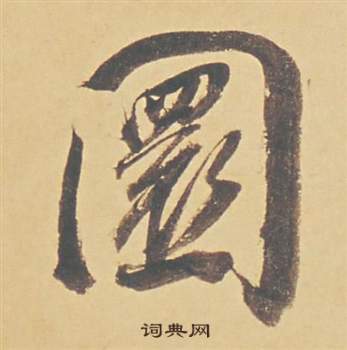 圜
词典网